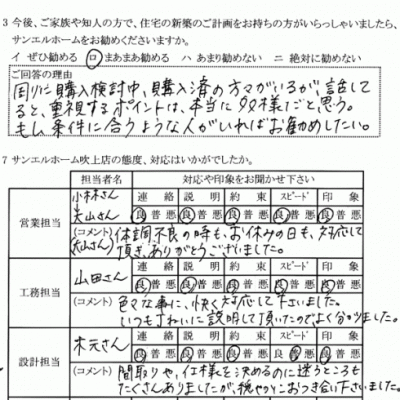 3 今後、ご家族や知人の方で、住宅の新築のご計画をお持ちの方がいらっしゃいましたら、
サンエルホームをお勧めくださいますか。
イ ぜひ勧める ロ まあまあ勧める ハ あまり勧めない ニ 絶対に勧めない
ご回答の理由
周りに購入検討中、購入済の方々がいるが、話して
ると、重視するポイントは、本当に多様だと思う。
もし条件に合うような人がいればお勧めしたい。
7 サンエルホーム吹上店の態度、対応はいかがでしたか。
担当者名 対応や印象をお聞かせ下さい
営業担当 小林さん 大山さん 連絡 説明 約束 スピード 印象
良 普 悪 良 普 悪 良 普 悪 良 普 悪 良 普 悪
(コメント) 体調不良の時も、お休みの日も、対応して
(大山さん) 頂き、ありがとうございました。
工務担当 山田さん 連絡 説明 約束 スピード 印象
良 普 悪 良 普 悪 良 普 悪 良 普 悪 良 普 悪
(コメント) 色々な事に、快く対応して下さいました。
いつも丁ねいに説明して頂いたのでよく分りました。
設計担当 木元さん 連絡 説明 約束 スピード 印象
良 普 悪 良 普 悪 良 普 悪 良 普 悪 良 普 悪
(コメント) 間取りや、仕様を決めるのに迷うところも
たくさんありましたが、穏やかにお つき合い下さいました。